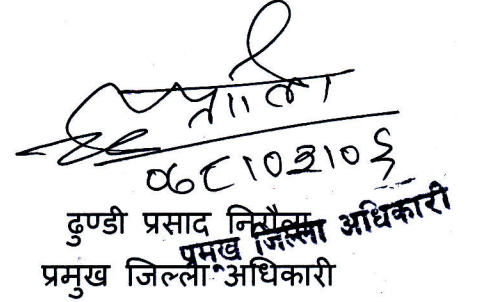 ०७८।०२।०६
ढुण्डी प्रसाद निरौला
प्रमुख जिल्ला अधिकारी
प्रमुख जिल्ला अधिकारी